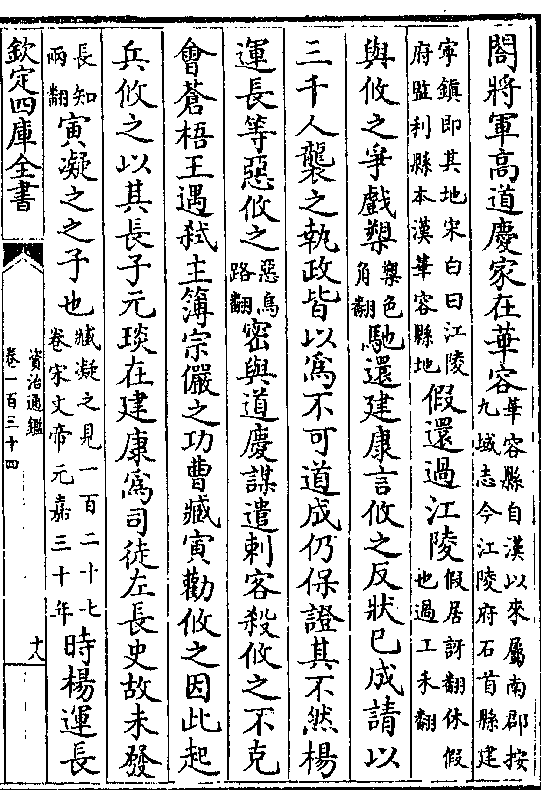 閤將軍高道慶家在華容華容縣自漢以來屬南郡按九域志今江陵府石首縣建
寧鎮即其地宋白曰江陵府監利縣本漢華容縣地假還過江陵假居訝翻休假也過工禾翻
與攸之爭戲槊槊色角翻馳還建康言攸之反狀已成請以
三千人襲之執政皆以為不可道成仍保證其不然楊
運長等惡攸之惡烏路翻密與道慶謀遣刺客殺攸之不克
會蒼梧王遇弑主簿宗儼之功曹臧寅勸攸之因此起
兵攸之以其長子元琰在建康為司徒左長史故未發
長知兩翻寅凝之之子也臧凝之見一百二十七卷宋文帝元嘉三十年時楊運長
欽定四庫全書
資治通鑑
卷一百三十四
十八